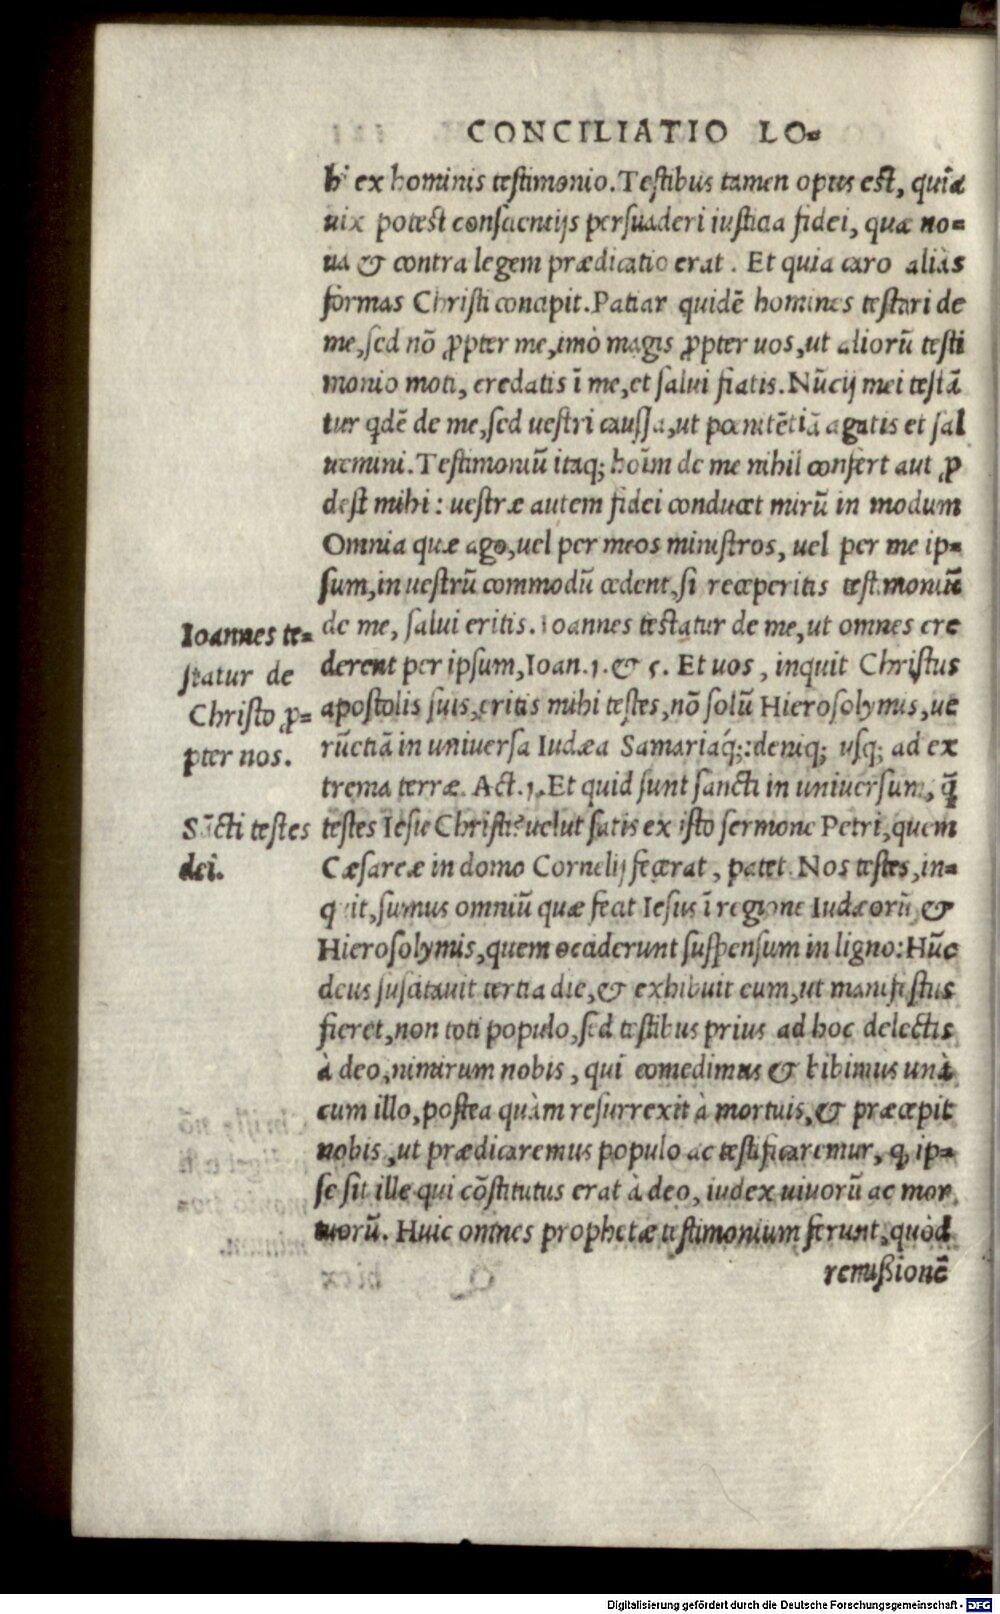 CONCILIATIO LO-
ex hominis testimonio. Testibus tamen opus est, quia
uix potest conscientijs persuaderi iusticia fidei, quæ no-
ua & contra legem prædicatio erat. Et quia caro aliàs
formas Christi concipit. Patiar quidē homines testari de
me, sed nō ꝓpter me, imò magis ꝓpter uos, ut aliorū testi
monio moti, credatis ī me, et salui fiatis. Nūcij mei testā
tur qdē de me, sed uestri caussa, ut pœnitētiā agatis et sal
uemini. Testimoniū itaq; hoīm de me nihil confert aut ꝓ
dest mihi: uestræ autem fidei conducet mirū in modum
Omnia quæ ago, uel per meos ministros, uel per me ip-
sum, in uestrū commodū cedent, si receperitis testimoniū
de me, salui eritis. Ioannes testatur de me, ut omnes cre
derent per ipsum, Ioan. 1. & 5. Et uos, inquit Christus
apostolis suis, eritis mihi testes, nō solū Hierosolymis, ue
rūetiā in uniuersa Iudæa Samariaq́;: deniq; usq; ad ex
trema terræ. Act. 1. Et quid sunt sancti in uniuersum, q̄
testes Iesu Christi? uelut satis ex isto sermone Petri, quem
Cæsareæ in domo Cornelij fecerat, patet. Nos testes, in-
quit, sumus omniū quæ fecit Iesus ī regione Iudæorū, &
Hierosolymis, quem occiderunt suspensum in ligno: Hūc
deus suscitauit tertia die, & exhibuit eum, ut manifestus
fieret, non toti populo, sed testibus prius ad hoc delectis
à deo, nimirum nobis, qui comedimus & bibimus unà
cum illo, postea quàm resurrexit à mortuis, & præcepit
nobis, ut prædicaremus populo ac testificaremur, ꝙ ip-
se sit ille qui cōstitutus erat à deo, iudex uiuorū ac mor
tuorū. Huic omnes prophetæ testimonium ferunt, quòd
remißionē
Ioannes te-
statur de
Christo ꝓ-
pter nos.
Sācti testes
dei.
Digitalisierung gefördert durch die Deutsche Forschungsgemeinschaft - DFG